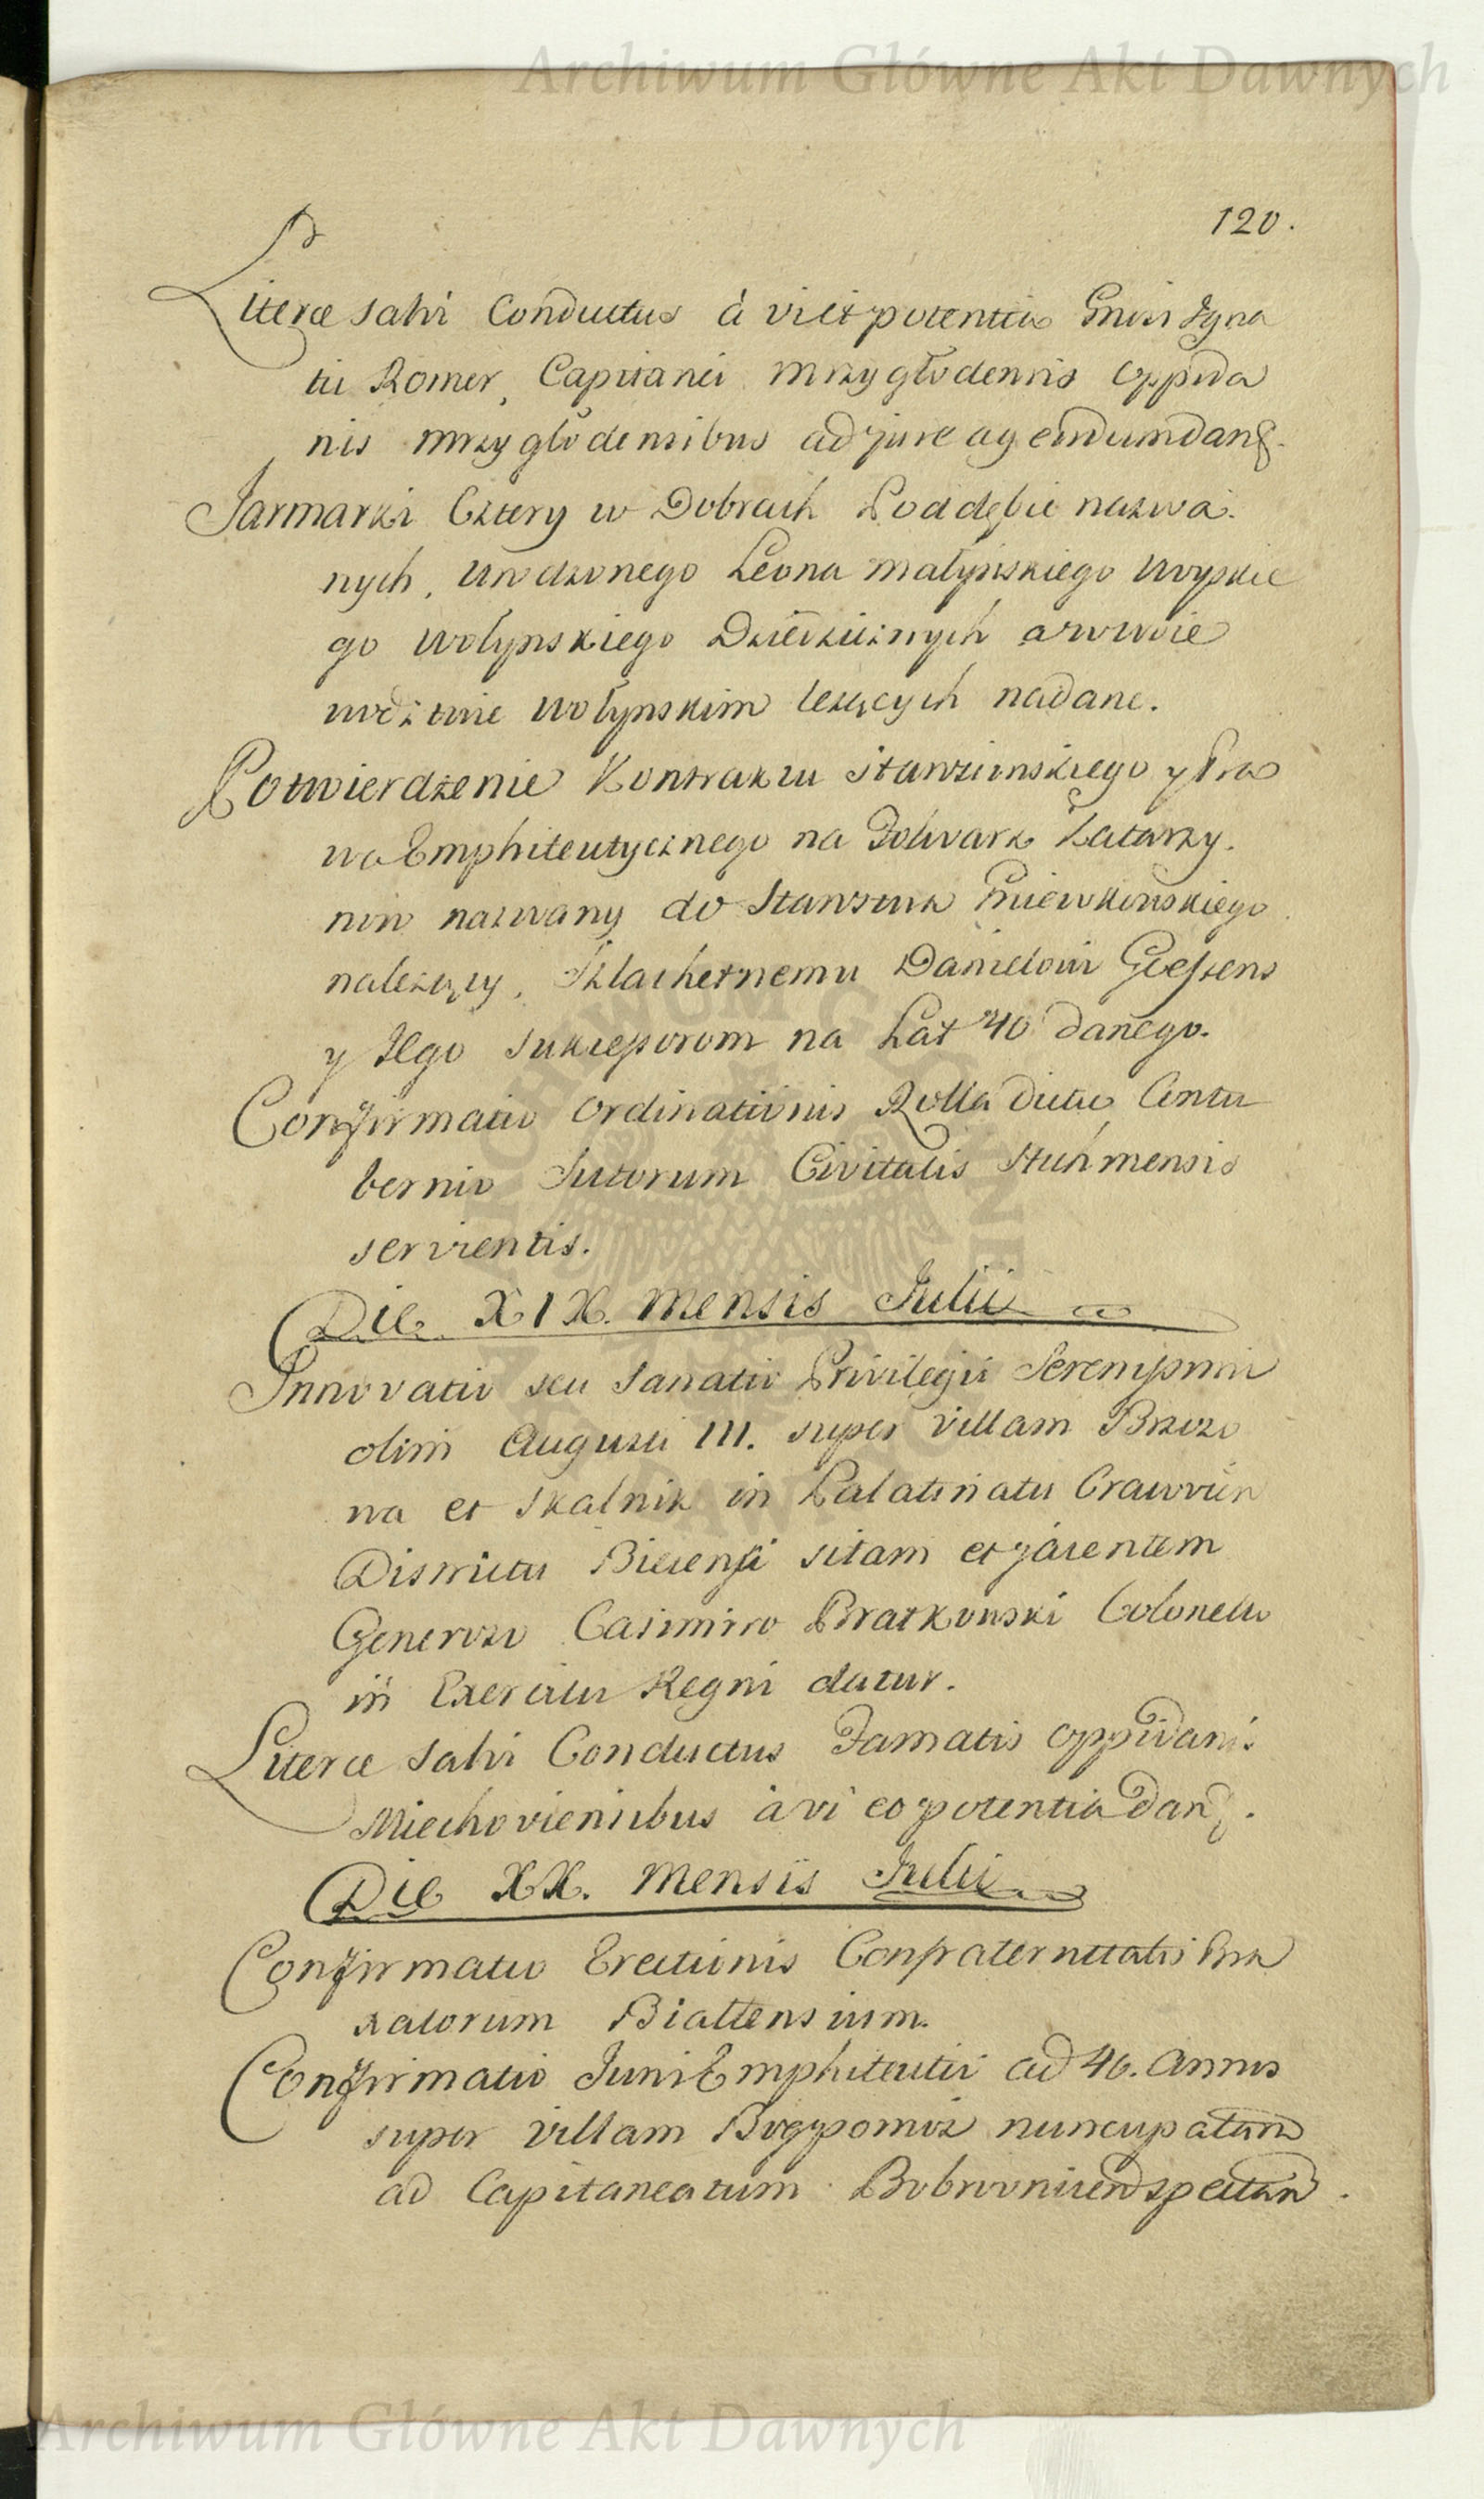 Archiwum Główne Akt Dawnych
120.
Literæ salvi Conductus à vi et potentia Gnisi Igna
tii Romer, Capitanei Mrzygłodensis oppida
nis Mrzygłodensibus ad jure agendum dant.
Jarmarki Cztery w Dobrach Poddębie nazwa.
nych, Urodzonego Leona Małyńskiego Woyskie
go Wołyńskiego Dziedzicznych a w Woie
wodztwie Wołyńskim leżących nadane.
Potwierdzenie Kontraktu Starościńskiego y Pra
wa Emphiteutycznego na Folwark Katarzy.
nin nazwany do Starostwa Gniewkowskiego
należący, Szlachetnemu Danielowi
y Jego Sukcessorom na Lat 40 danego.
Confirmatio Ordinationis Rolla dictæ Contu
bernio Sutorum Civitatis Stuhmensis
servientis.
Die XIX. Mensis Julii
Innovatio seu Sanatio Privilegii Serenissimi
olim Augusti III. super villam Brzozo
wa et Skalnik in Palatinatu Cracovien
Districtu Biecensi sitam et jacentem
Generoso Casimiro Bratkowski Colonello
in Exercitu Regni datur.
Literæ Salvi Conductus Famatis oppidanis
Miechoviensibus à vi eo potentia dant.
Die XX. Mensis Julii
Confirmatio Erectionis Confraternitatis Bra
xatorum Biallensium.
Confirmatio Juris Emphiteutici ad 40. Annos
super villam nuncupatam
ad Capitaneatum Bobrovnicen spectan.
Archiwum Główne Akt Dawnych